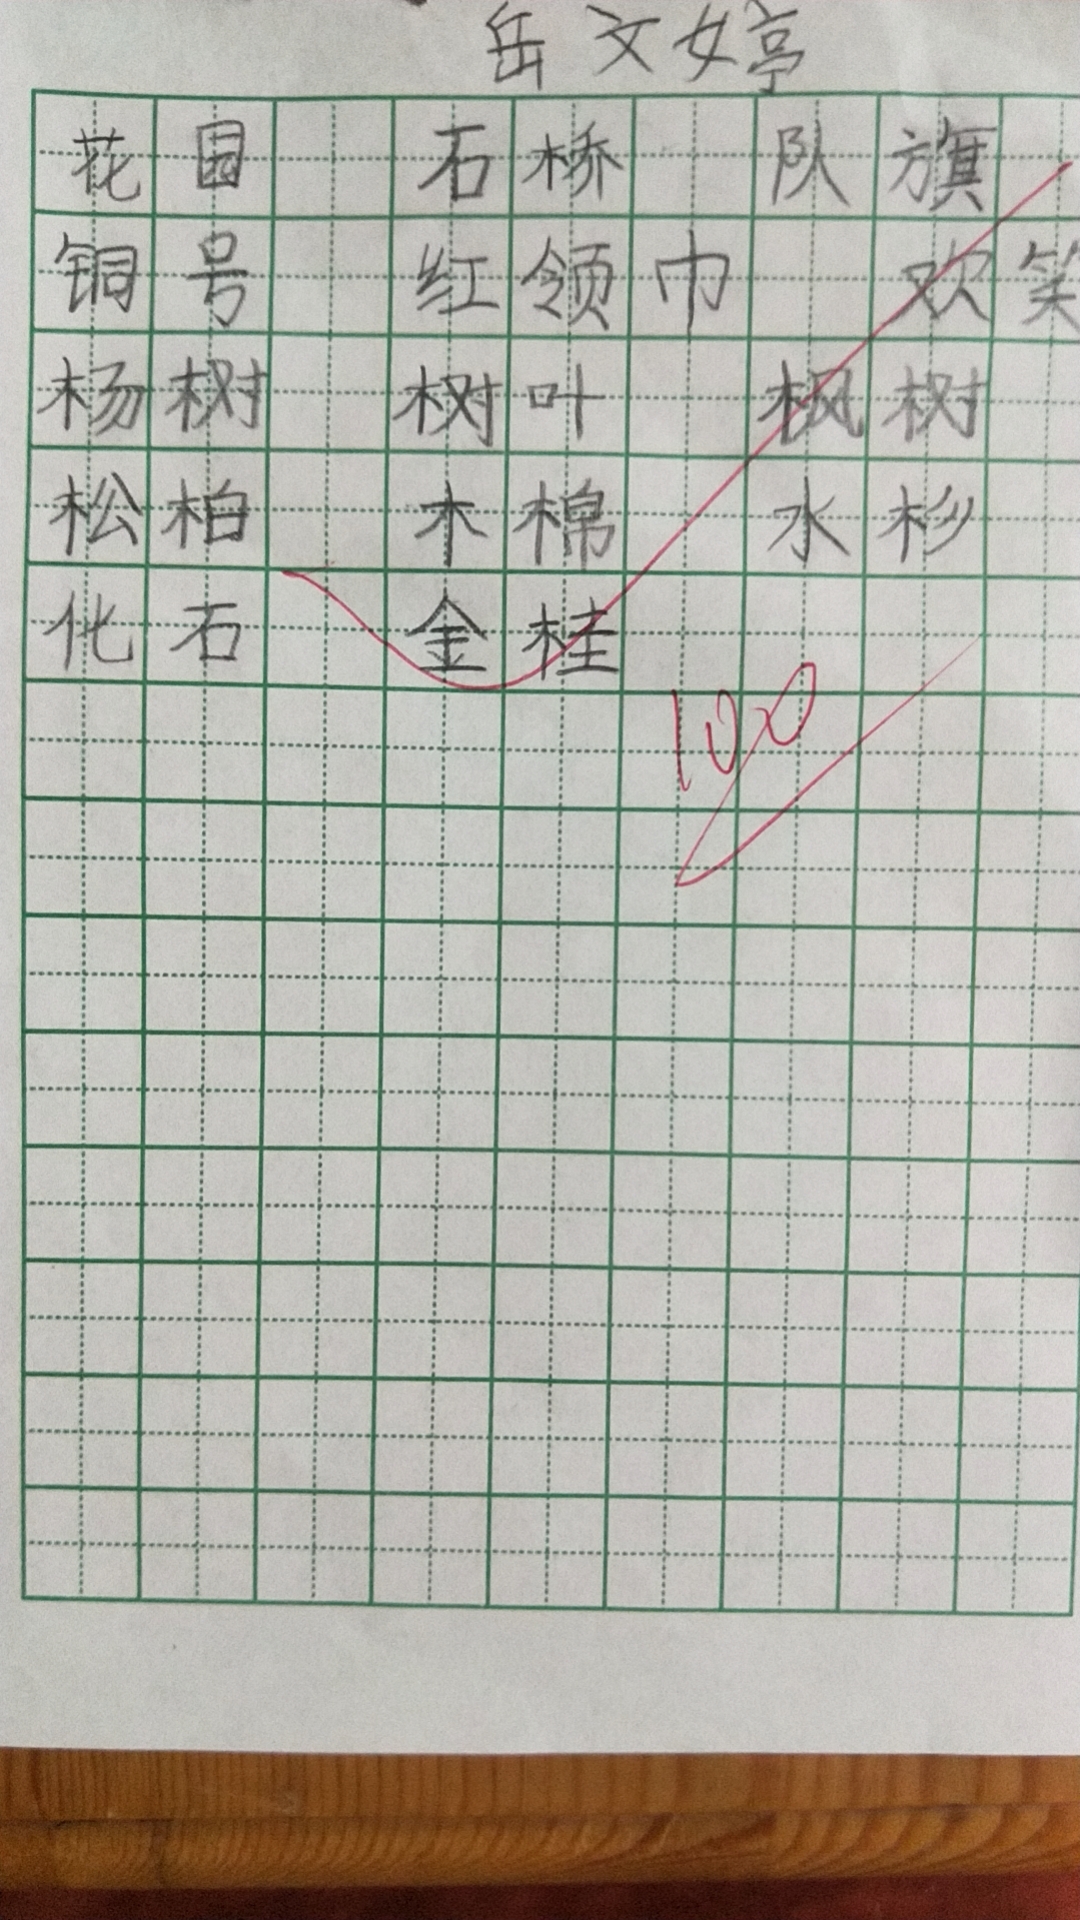 岳文婷
花园 石桥 队旗
铜号 红领巾 欢笑
杨树 树叶 枫树
松柏 木棉 水杉
化石 金桂
100